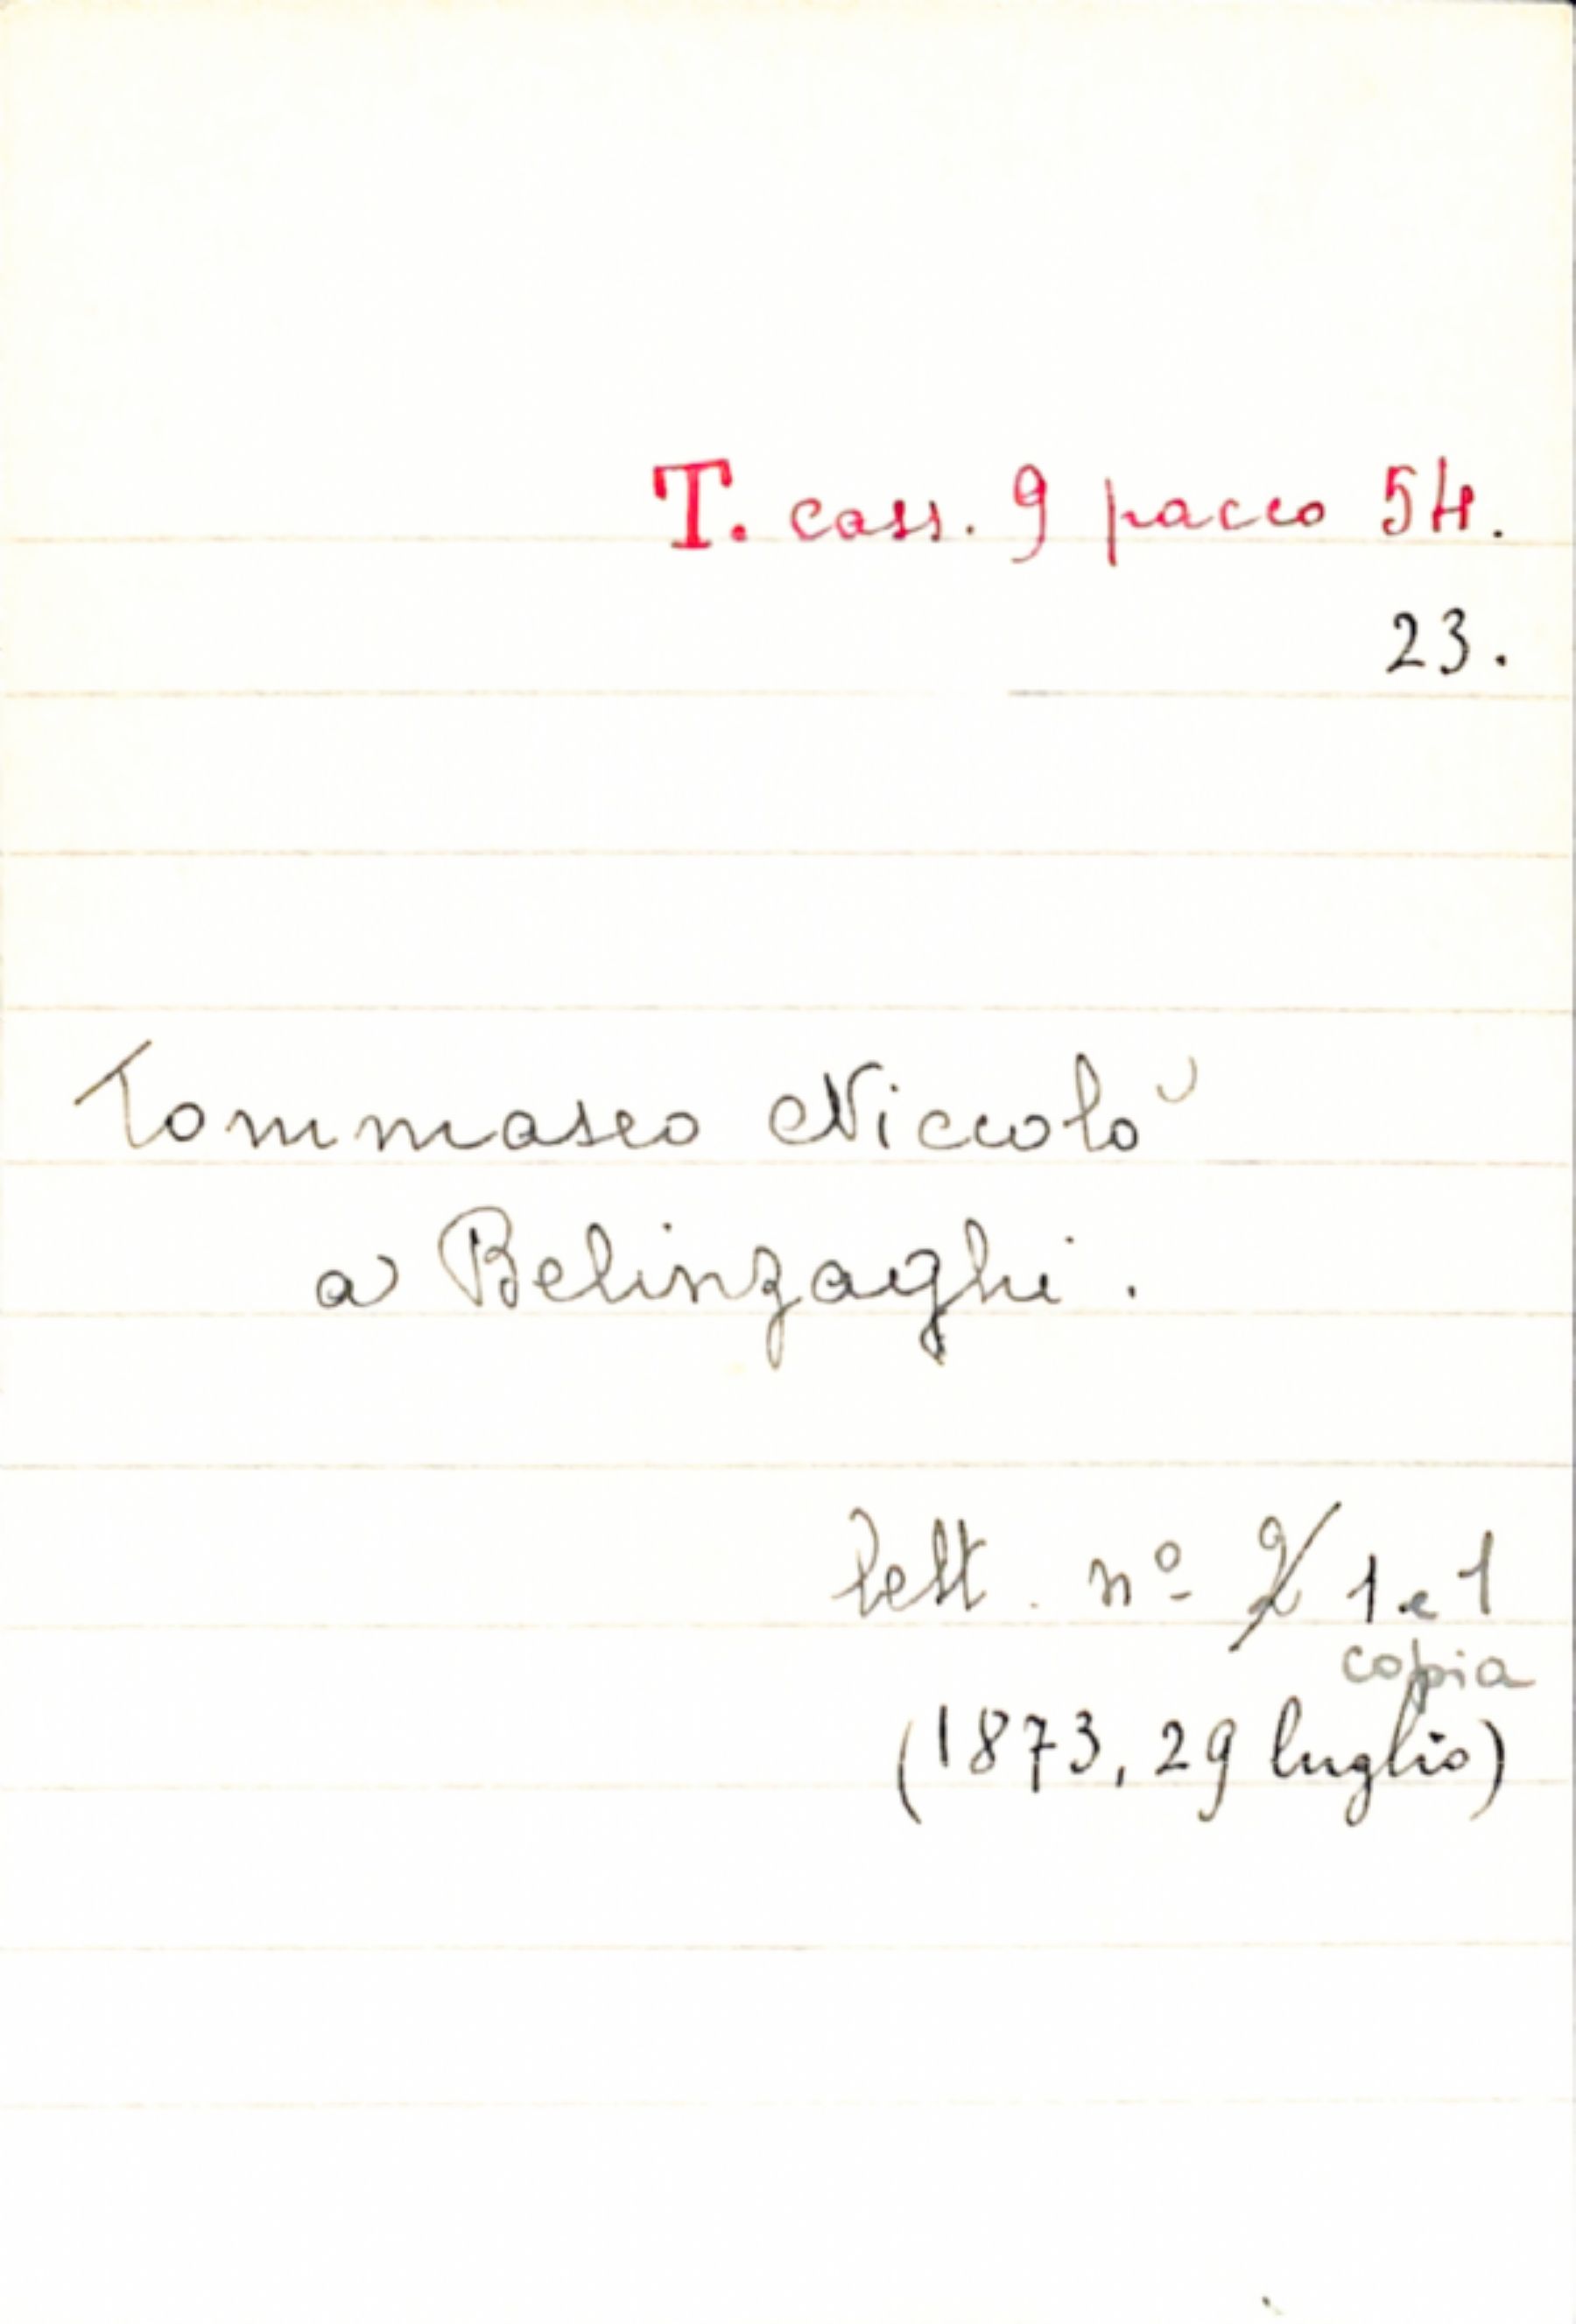 T. cass. 9 pacco 54.
23.
Tommaseo Niccolò
a Belinzaghi.
lett. nº 2 1 e 1
copia
(1873, 29 luglio)